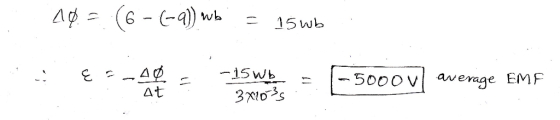 Δφ = (6 - (-9)) wb = 15wb
∴ ε = -Δφ/Δt = -15Wb/3×10⁻³s = -5000V average EMF